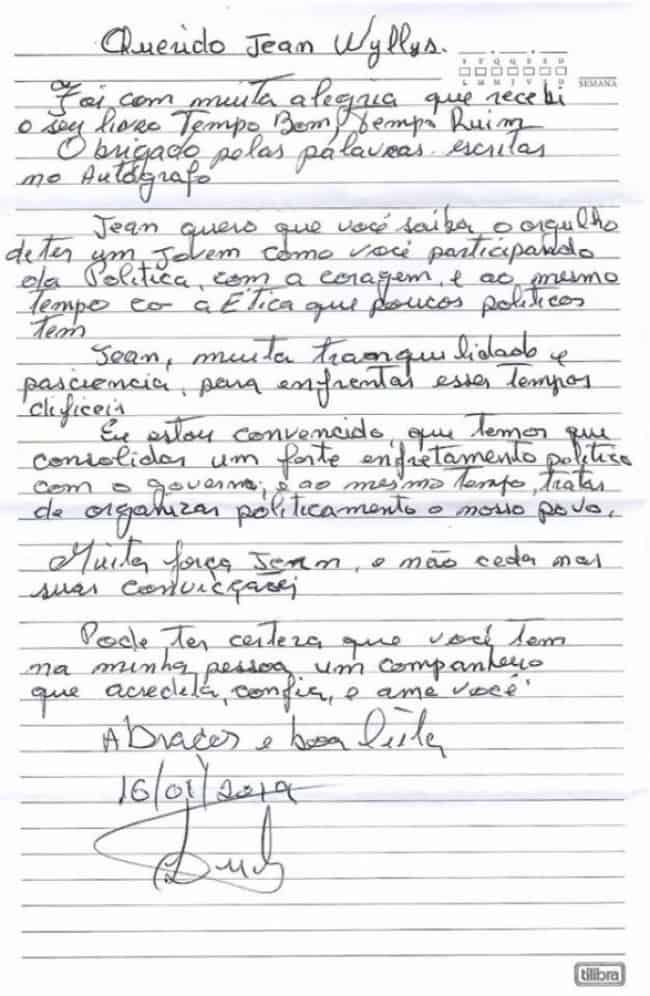 Querido Jean Wyllys.
S T Q Q S S D
L M M J V S D
SEMANA
Foi com muita alegria que recebi
o seu livro Tempo Bom, Tempo Ruim
Obrigado pelas palavras escritas
no Autógrafo
Jean quero que você saiba o orgulho
de ter um jovem como você participando
da Politica, com a coragem, e ao mesmo
tempo co a Ética que poucos politicos
tem
Jean, muita tranquilidade e
pasciencia, para enfrentar esses tempos
dificeis
Eu estou convencido, que temos que
consolidar um forte enfretamento politico
com o governo, e ao mesmo tempo, tratar
de organizar politicamente o nosso povo,
Muita força Jean, e não ceda nas
suas convicções
Pode ter certeza que você tem
na minha pessoa um companheiro
que acredita, confia, e ama você.
Abraços e boa leita
16/01/2019
tilibra